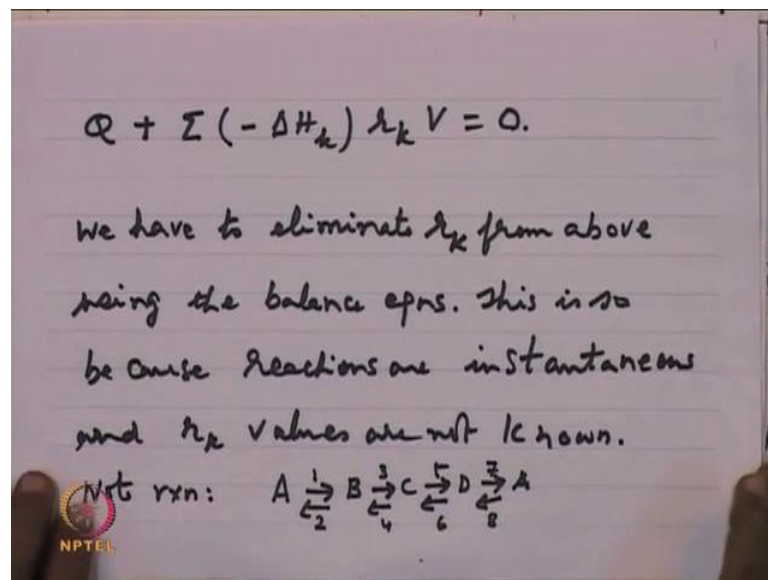 Q + Σ (- ΔH_k) r_k V = 0.
We have to eliminate r_k from above
using the balance eqns. This is so
because reactions are instantaneous
and r_k values are not known.
Not rxn: A ⇌ B ⇌ C ⇌ D ⇌ A
1 3 5 7
2 4 6 8
NPTEL